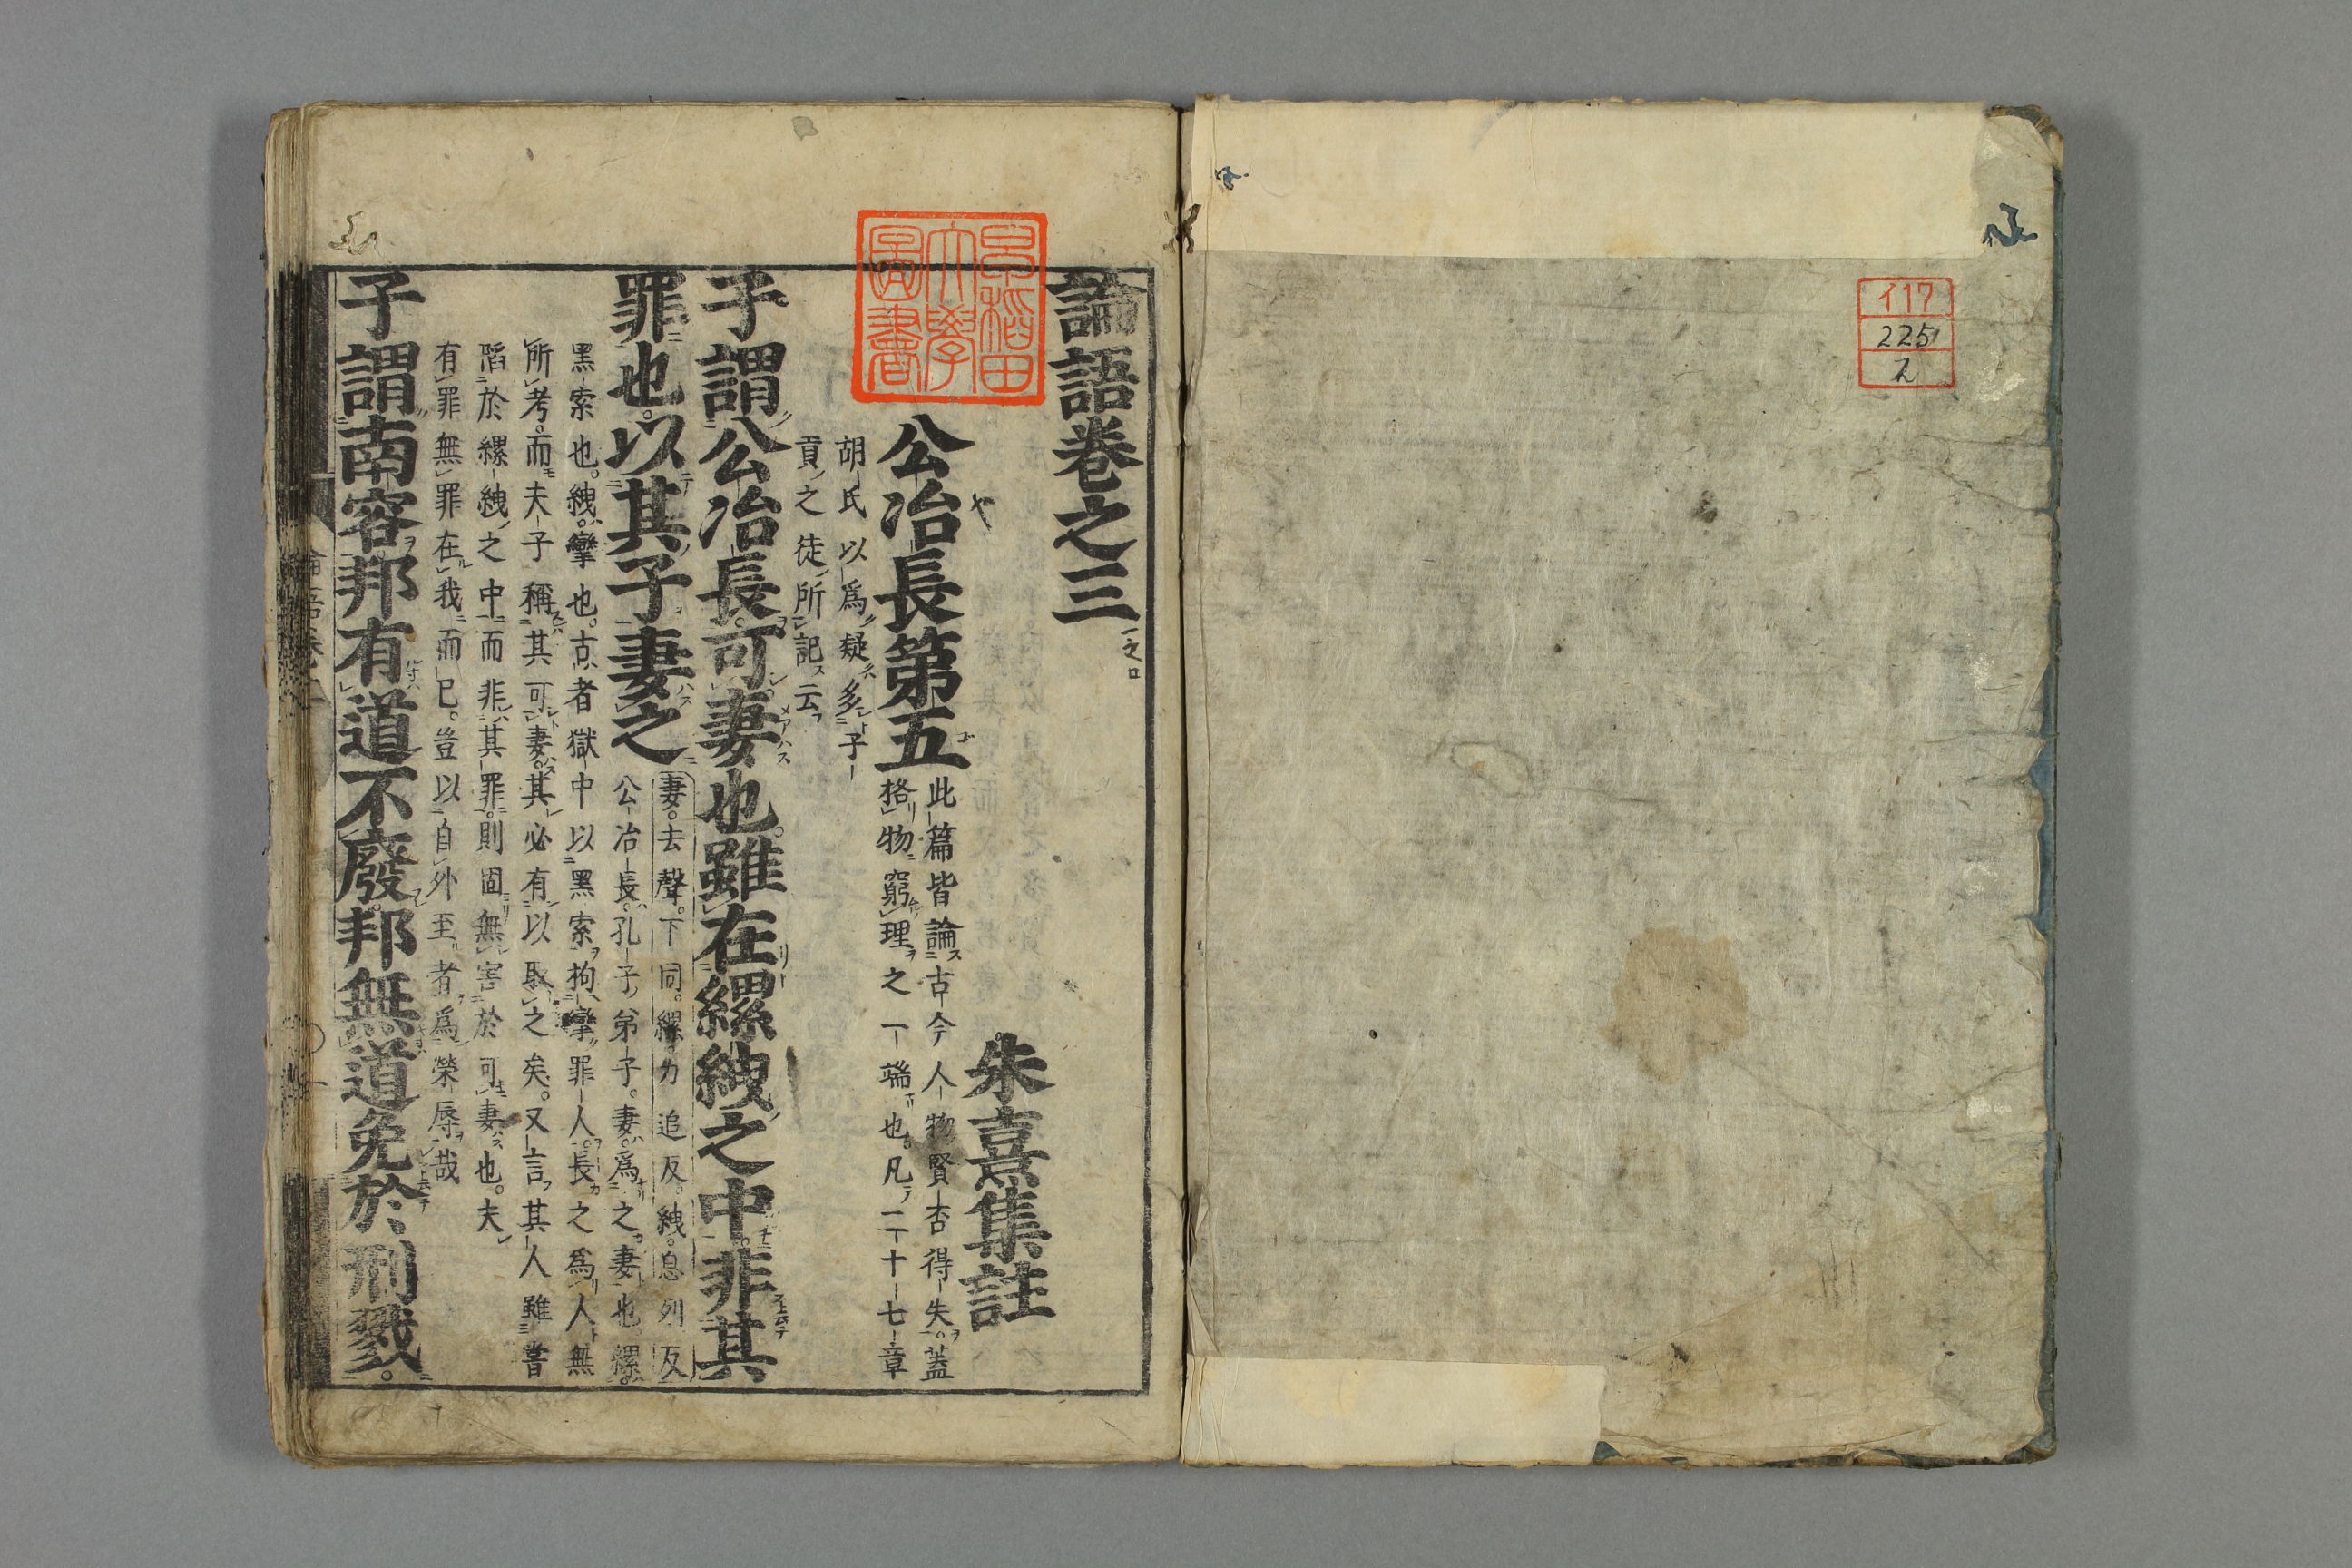 イ17
225
2
論語卷之三
早稻田
大學
圖書
朱熹集註
公冶長第五
此篇皆論古今人物賢否得失。蓋
格物窮理之一端也。凡二十七章
胡氏以爲疑多子
貢之徒所記云
子謂公冶長。可妻也。雖在縲絏之中。非其
罪也。以其子妻之
妻。去聲。下同。縲。力追反。絏。息列反
公冶長。孔子弟子。妻。爲之妻也。縲。
黑索也。絏。攣也。古者獄中以黑索拘攣罪人。長之爲人無
所考。而夫子稱其可妻。其必有以取之矣。又言其人雖嘗
陷於縲絏之中而非其罪。則固無害於可妻也。夫
有罪無罪在我而已。豈以自外至者爲榮辱哉
子謂南容邦有道不廢。邦無道免於刑戮。